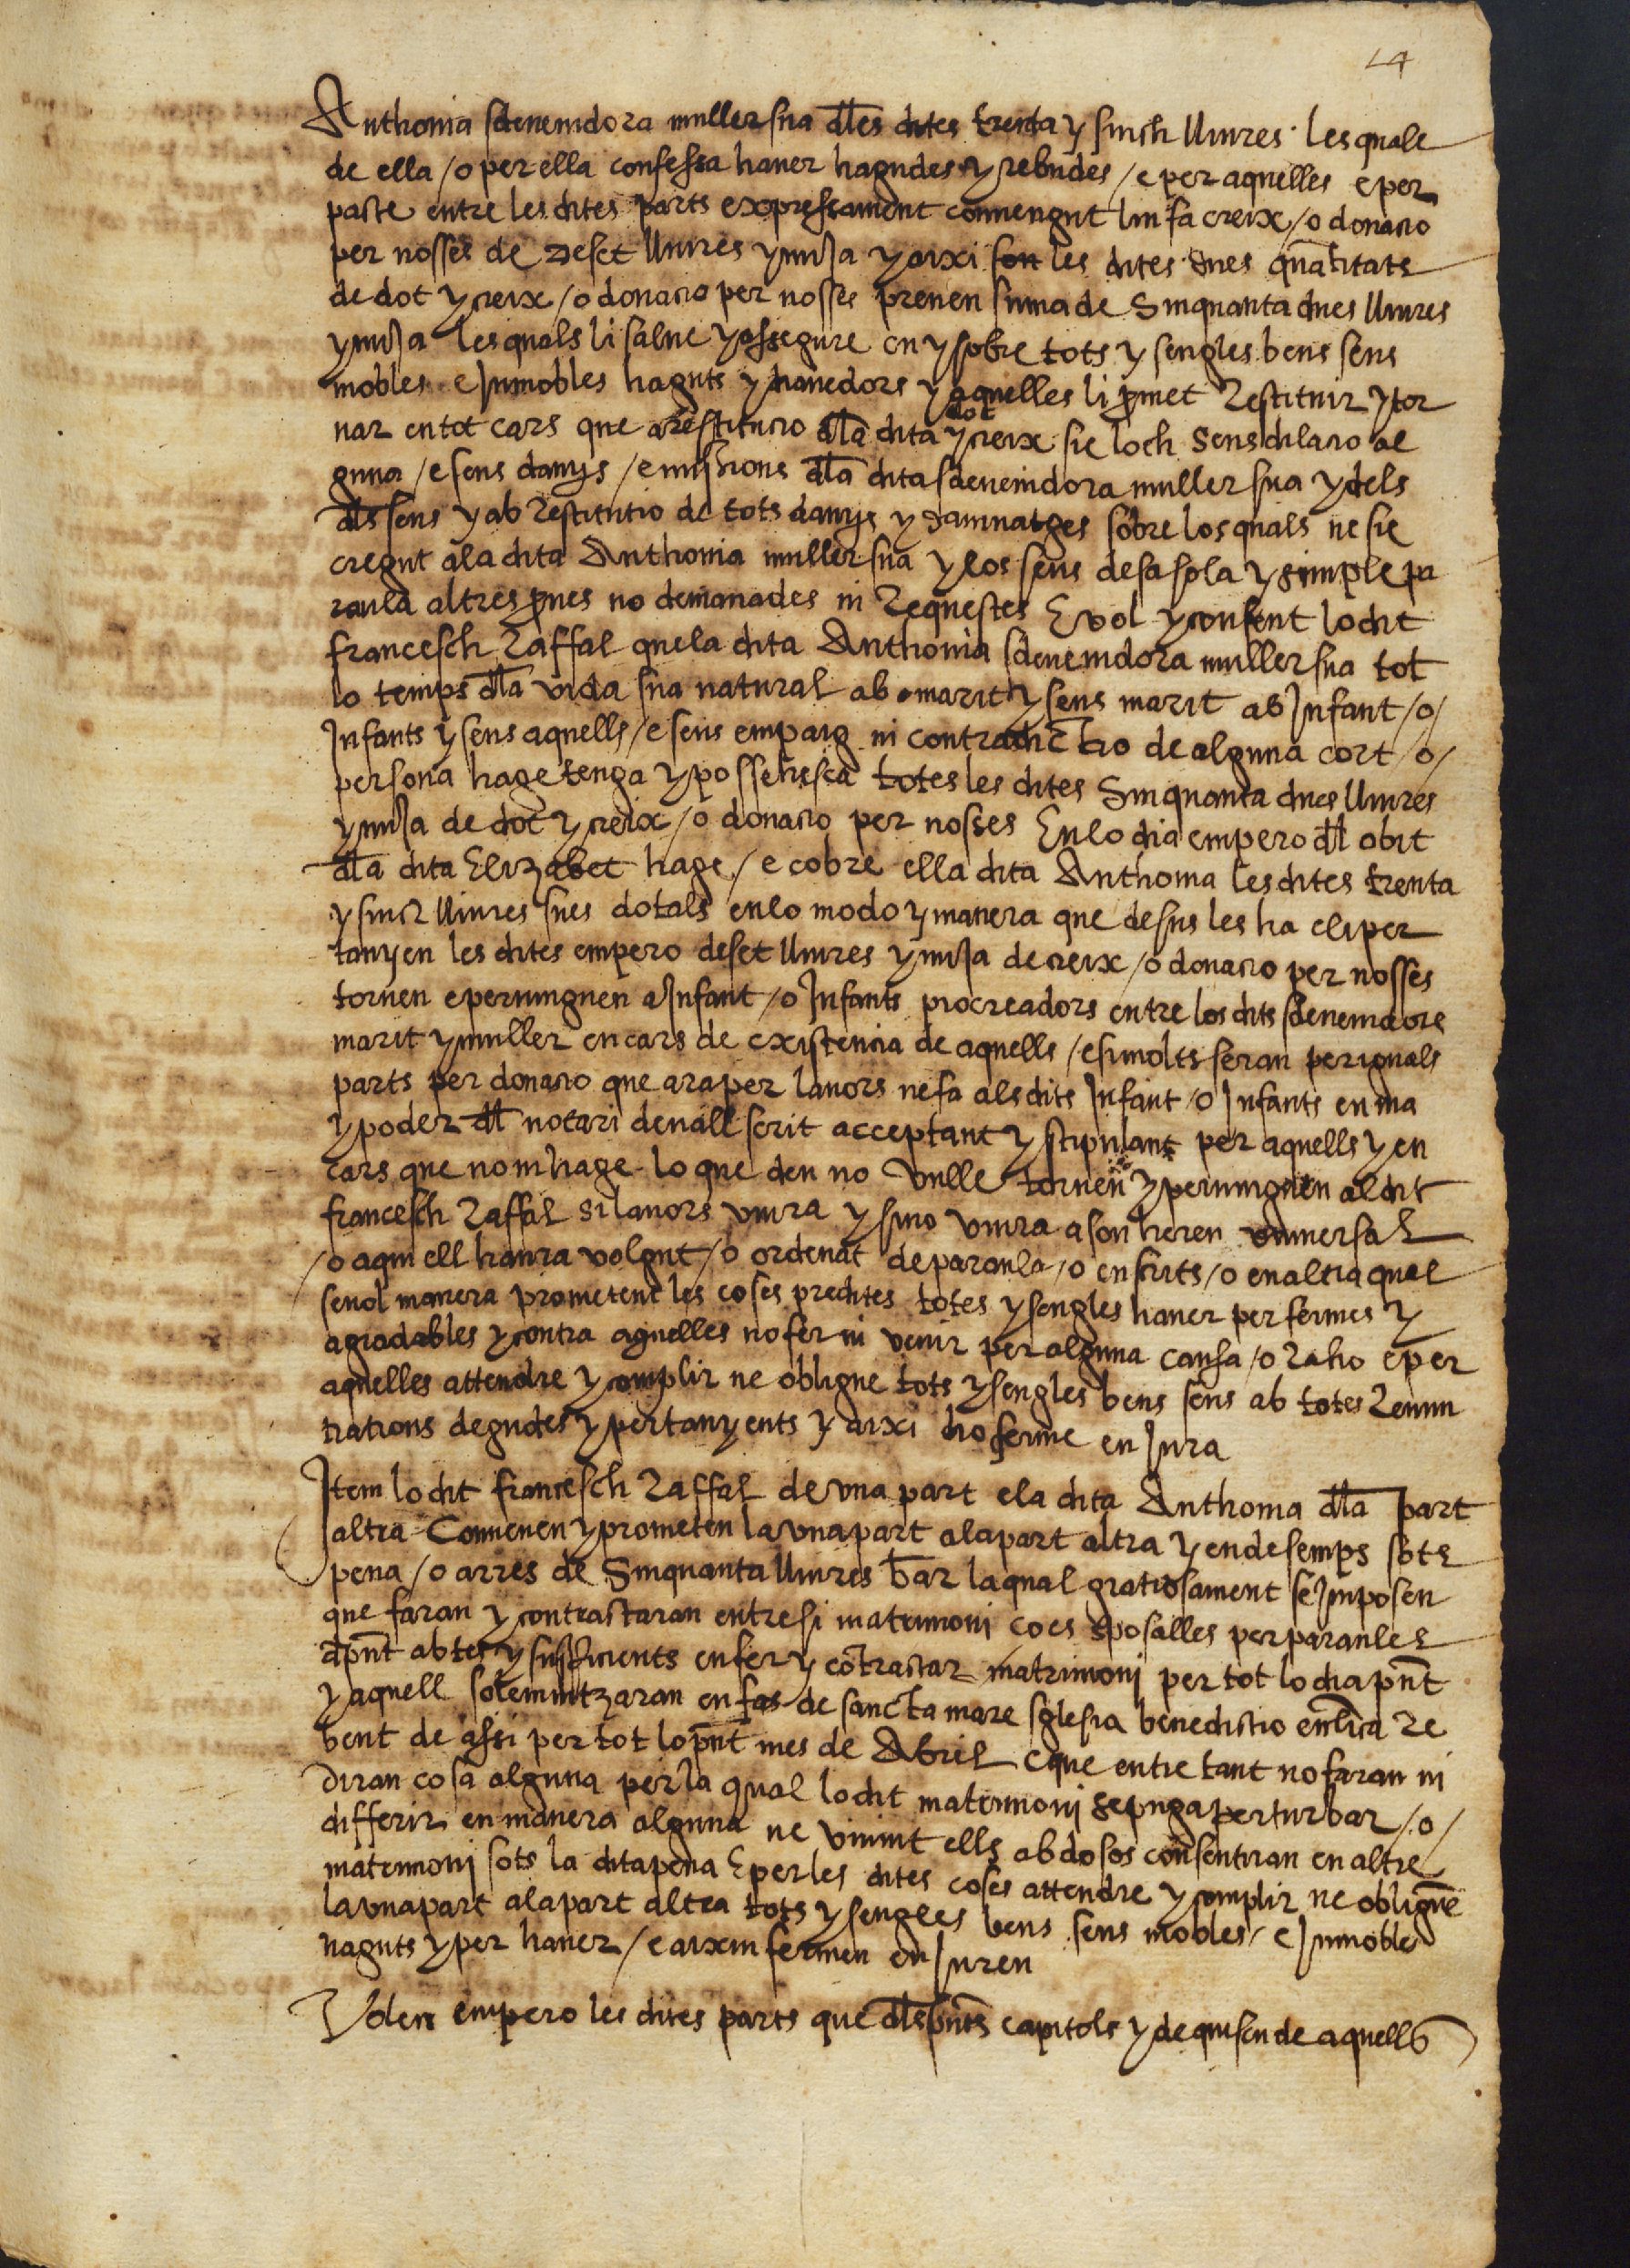 14
Anthonia sdevenidora muller sua dles dites trenta y sinch lliures les quals
de ella / o per ella confessa haver hagudes y rebudes / e per aquelles e per
pacte entre les dites parts expressament convengut lin fa creix / o donacio
per nosses de deset lliures y mija y axi son les dites dues quãtitats
de dot y creix / o donacio per nosses prenen suma de sinquanta dues lliures
y mija les quals li salve y assegure en y sobre tots y sengles bens seus
mobles e Inmobles haguts y havedors y aquelles li pmet Restituir y tor
nar en tot cars que a restitucio dla dita dot y creix sie loch sens dilacio al
guna / e sens danys / e missions dla dita sdevenidora muller sua y dels
dls seus y ab Restitutio de tots danys y damnatges sobre los quals ne sie
cregut a la dita Anthonia muller sua y los seus de sa sola y simple pa
raula altres pves no demanades ni Requestes E vol y consent lo dit
francesch Raffal que la dita Anthonia sdevenidora muller sua tot
lo temps dla vida sua natural ab marit y sens marit ab Infant / o /
Infants y sens aquells / e sens empaig ni contradictio de alguna cort / o /
persona hage tenga y possehesca totes les dites Sinquanta dues lliures
y mija de dot y creix / o donacio per nosses En lo dia empero dl obit
dla dita Elizabet hage / e cobre ella dita Anthonia les dites trenta
y sinch lliures sues dotals en lo modo y manera que desus les ha e li per
tanyen les dites empero deset lliures y mija de creix / o donacio per nosses
tornen e pervinguen a Infant / o Infants procreadors entre los dits sdevenidors
marit y muller en cars de existencia de aquells / e si molts seran per iguals
parts per donacio que ara per lavors ne fa als dits Infant / o Infants en ma
y poder dl notari devall scrit acceptant y stipulant per aquells y en
cars que nom hage lo que deu no vulle tornen y pervinguen al dit
francesch Raffal si lavors viura y sino viura a son hereu universal
/ o a qui ell haura volgut / o ordenat de paraula / o en scrits / o en altra qual
sevol manera prometent les coses predites totes y sengles haver per fermes y
agradables y contra aquelles no fer ni venir per alguna causa / o Raho e per
aquelles attendre y complir ne obligue tots y sengles bens seus ab totes Renun
tiations degudes y pertanyents y axi ho ferme en Jura
Item lo dit francesch Raffal de una part e la dita Anthonia dla part
altra Convenen y prometen la una part a la part altra y endesemps sots
pena / o arres de Sinquanta lliures bar la qual gratiosament se Imposen
que faran y contractaran entre si matrimoni ço es sposalles per paraules
d pnt abtes y sufficients en fer y cõtractar matrimoni per tot lo dia pnt
y aquell solemnitzaran en fas de sancta mare sglesia benedictio enlla Re
bent de assi per tot lo pnt mes de Abril e que entre tant no faran ni
diran cosa alguna per la qual lo dit matrimoni se puga perturbar / o /
differir en manera alguna ne vivint ells abdosos consentiran en altre
matrimoni sots la dita pena E per les dites coses attendre y complir ne obliguẽ
la una part a la part altra tots y sengles bens seus mobles / e Inmobles
haguts y per haver / e axiu fermen en Juren
Volen empero les dites parts que dls pnts capitols y de quiscu de aquells